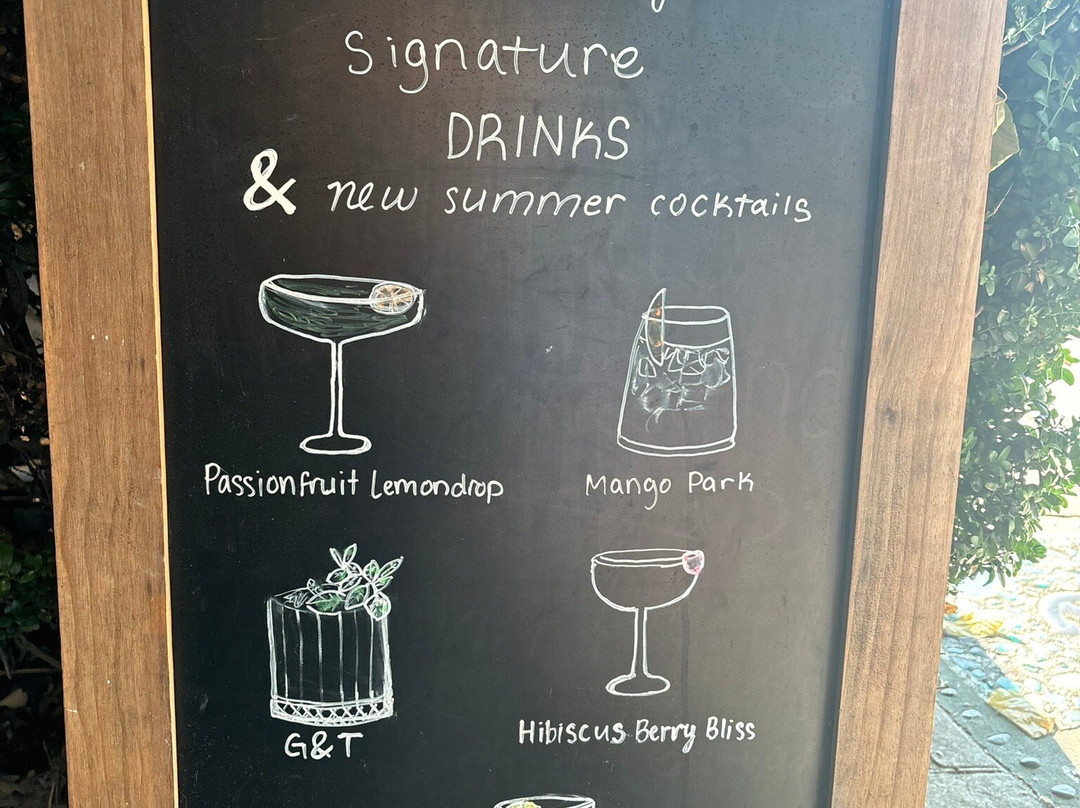 Signature
DRINKS
& new summer cocktails
Passionfruit Lemondrop
Mango Park
G&T
Hibiscus Berry Bliss